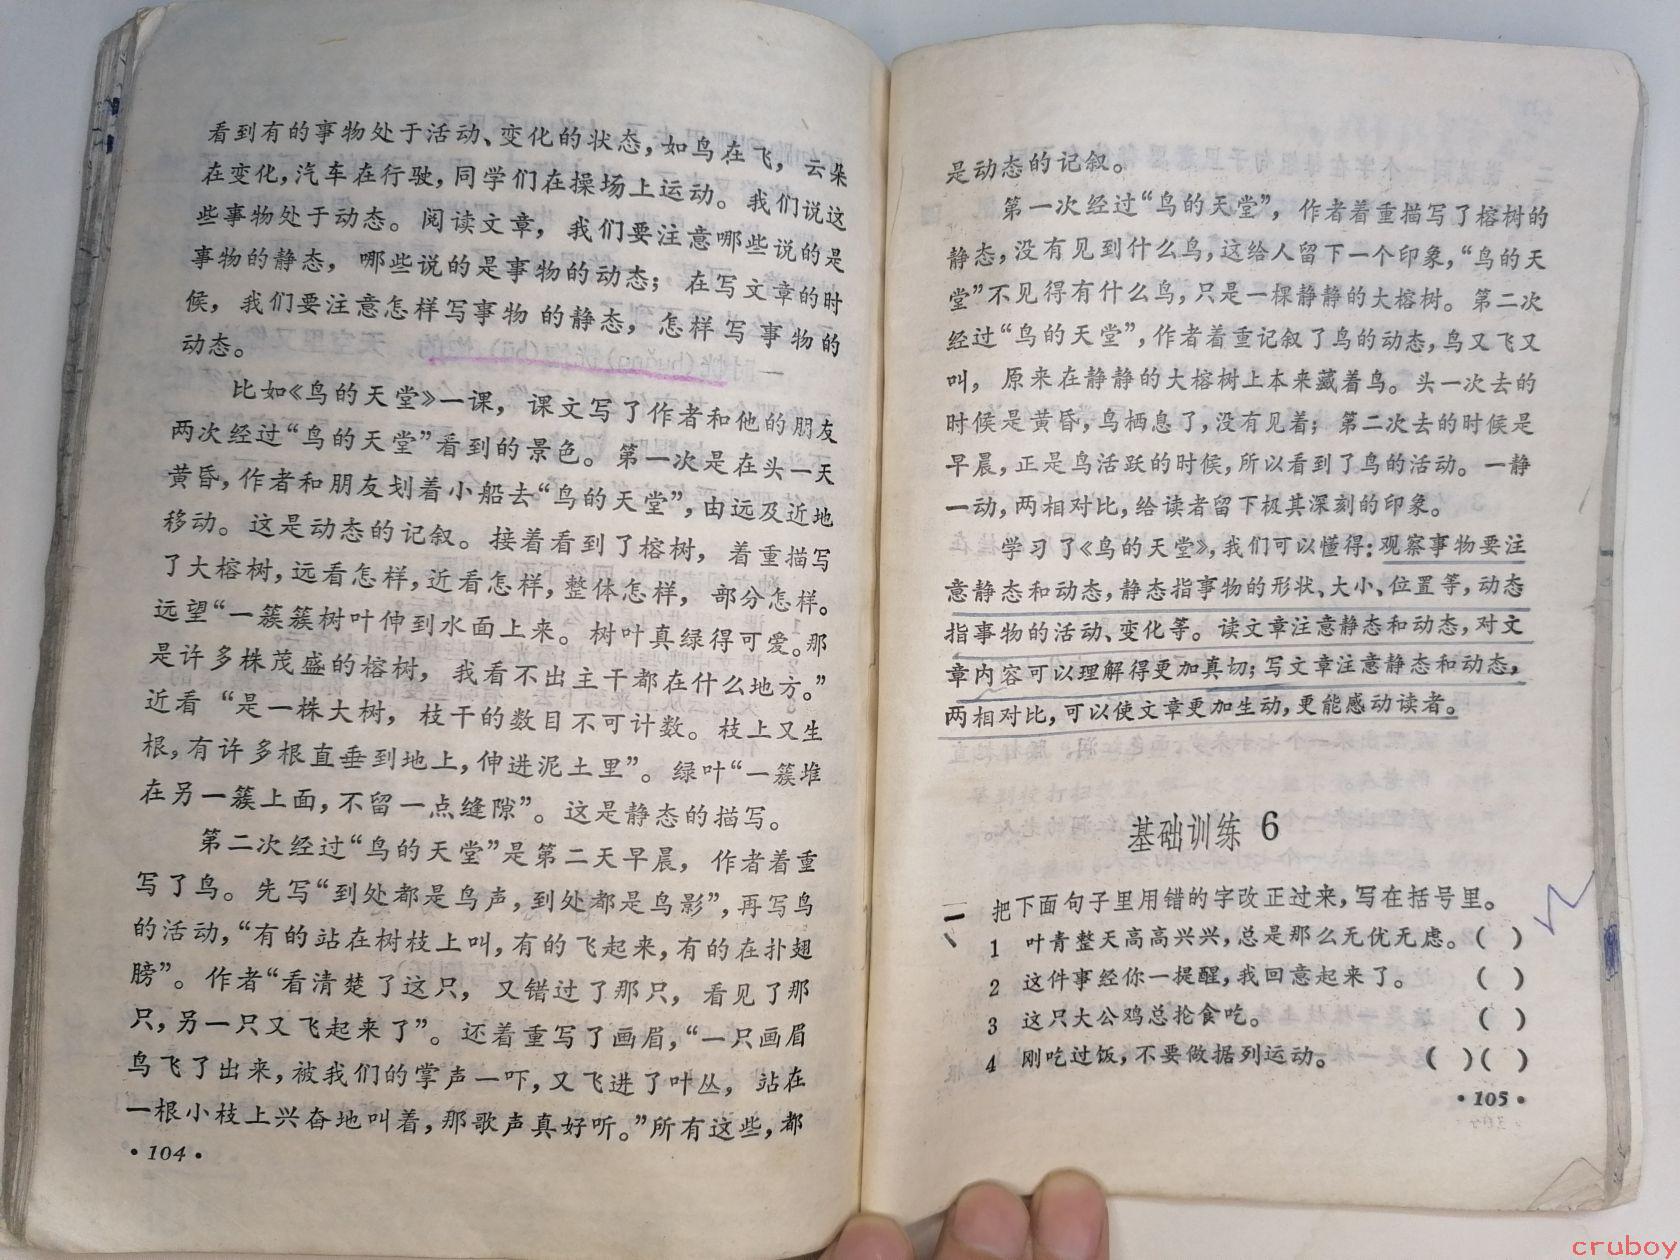 看到有的事物处于活动、变化的状态，如鸟在飞，云朵
在变化，汽车在行驶，同学们在操场上运动。我们说这
些事物处于动态。阅读文章，我们要注意哪些说的是
事物的静态，哪些说的是事物的动态；在写文章的时
候，我们要注意怎样写事物的静态，怎样写事物的
动态。
比如《鸟的天堂》一课，课文写了作者和他的朋友
两次经过“鸟的天堂”看到的景色。第一次是在头一天
黄昏，作者和朋友划着小船去“鸟的天堂”，由远及近地
移动。这是动态的记叙。接着看到了榕树，着重描写
了大榕树，远看怎样，近看怎样，整体怎样，部分怎样。
远望“一簇簇树叶伸到水面上来。树叶真绿得可爱。那
是许多株茂盛的榕树，我看不出主干都在什么地方。”
近看“是一株大树，枝干的数目不可计数。枝上又生
根，有许多根直垂到地上，伸进泥土里”。绿叶“一簇堆
在另一簇上面，不留一点缝隙”。这是静态的描写。
第二次经过“鸟的天堂”是第二天早晨，作者着重
写了鸟。先写“到处都是鸟声，到处都是鸟影”，再写鸟
的活动，“有的站在树枝上叫，有的飞起来，有的在扑翅
膀”。作者“看清楚了这只，又错过了那只，看见了那
只，另一只又飞起来了”。还着重写了画眉，“一只画眉
鸟飞了出来，被我们的掌声一吓，又飞进了叶丛，站在
一根小枝上兴奋地叫着，那歌声真好听。”所有这些，都
·104·
是动态的记叙。
第一次经过“鸟的天堂”，作者着重描写了榕树的
静态，没有见到什么鸟，这给人留下一个印象，“鸟的天
堂”不见得有什么鸟，只是一棵静静的大榕树。第二次
经过“鸟的天堂”，作者着重记叙了鸟的动态，鸟又飞又
叫，原来在静静的大榕树上本来藏着鸟。头一次去的
时候是黄昏，鸟栖息了，没有见着；第二次去的时候是
早晨，正是鸟活跃的时候，所以看到了鸟的活动。一静
一动，两相对比，给读者留下极其深刻的印象。
学习了《鸟的天堂》，我们可以懂得：观察事物要注
意静态和动态，静态指事物的形状、大小、位置等，动态
指事物的活动、变化等。读文章注意静态和动态，对文
章内容可以理解得更加真切；写文章注意静态和动态，
两相对比，可以使文章更加生动，更能感动读者。
基础训练 6
一 把下面句子里用错的字改正过来，写在括号里。
1 叶青整天高高兴兴，总是那么无优无虑。（ ）
2 这件事经你一提醒，我回意起来了。（ ）
3 这只大公鸡总抡食吃。（ ）
4 刚吃过饭，不要做据列运动。（ ）（ ）
·105·
cruboy